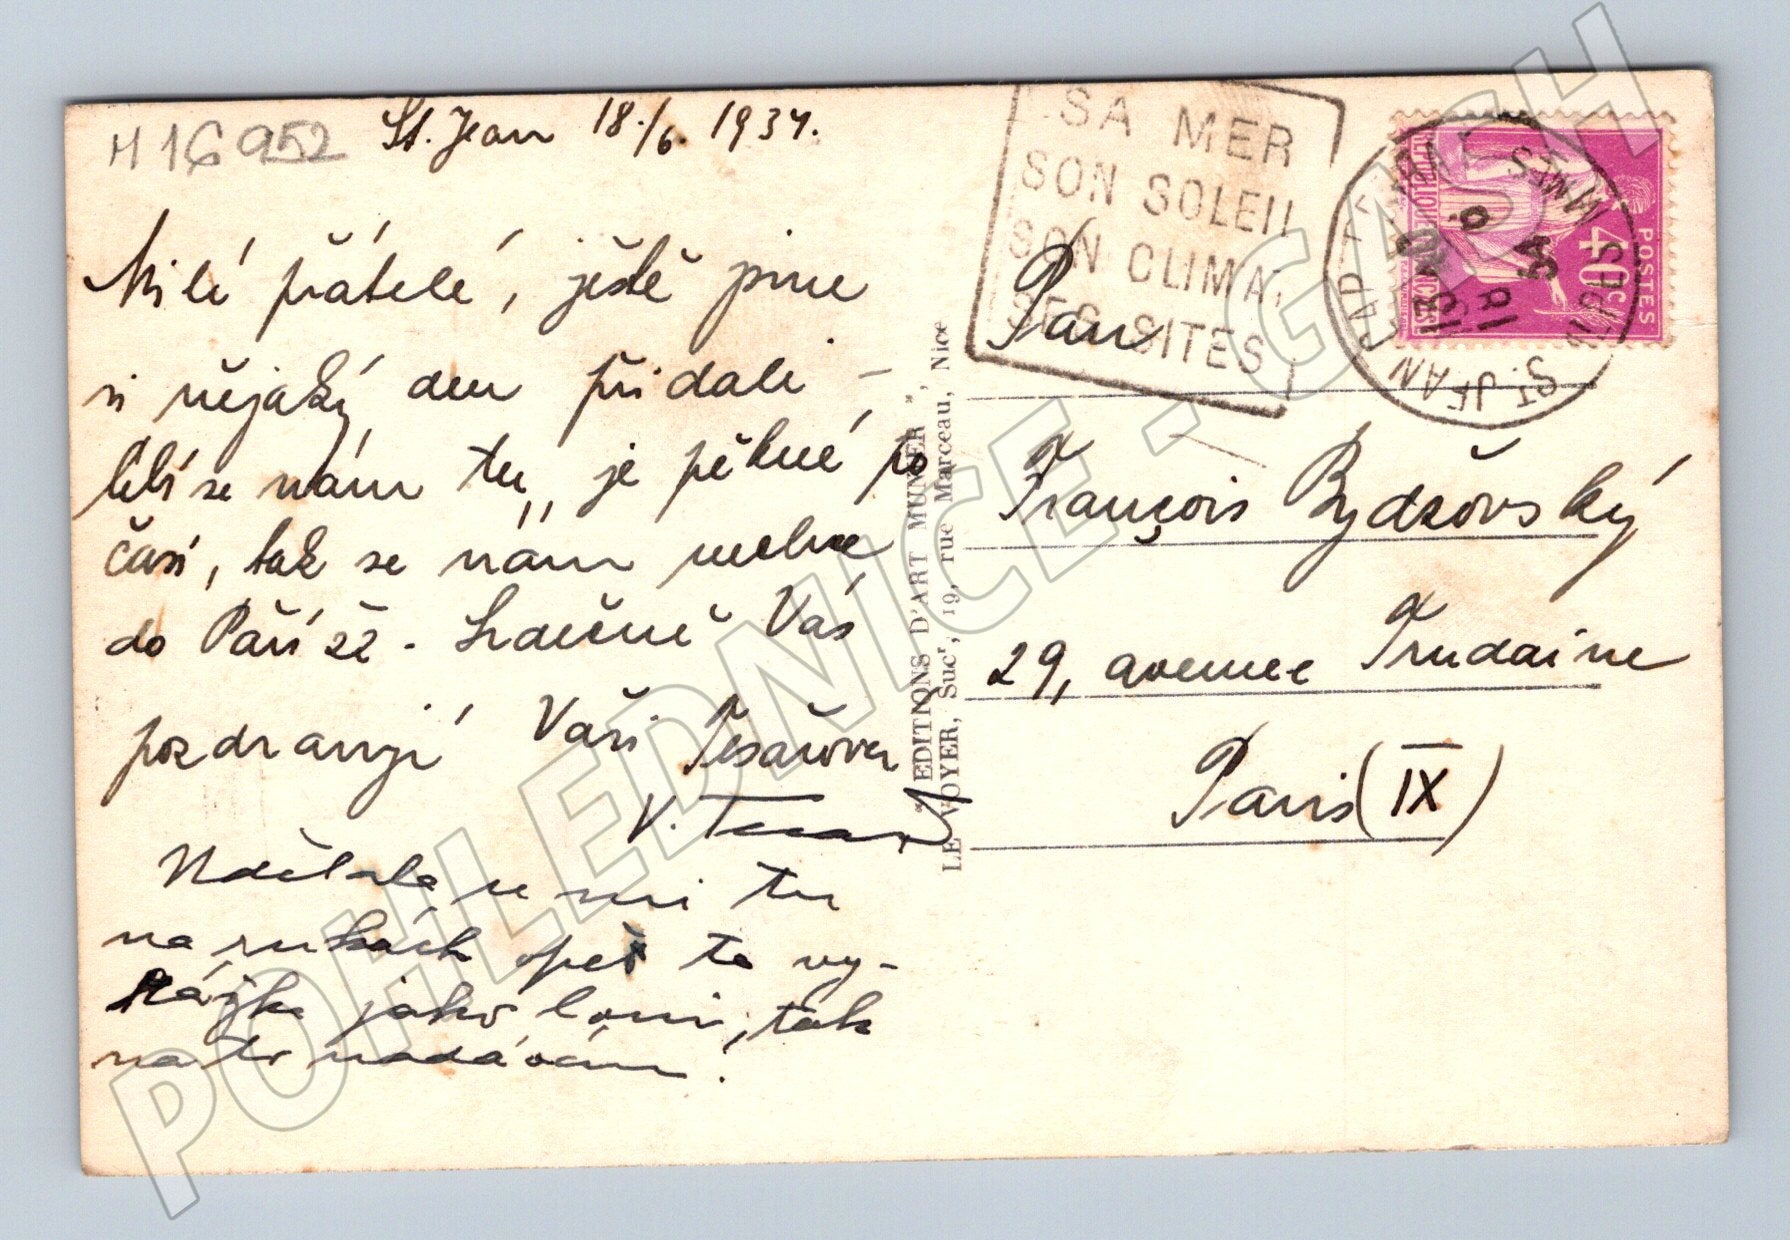 H 16952
St. Jean 18./6. 1934.
Milé přátelé, ještě jsme
si nějaký den přidali -
líbí se nám tu, je pěkné po
časí, tak se nám nechce
do Paříže. Srdečně Vás
pozdravují Vaši Tesařovi
V. Tesař
Udělala se mi tu
na rukách opět ta vy-
rážka jako loni, tak
na to nadávám!
"EDITIONS D'ART MUNIER",
LE VOYER, Sucr, 19, rue Marceau, Nice
SA MER
SON SOLEIL
SON CLIMAT
SES SITES
POSTES
40c
ST JEAN CAP FERRAT
ALPES MMES
18
6
34
Pan
François Bydžovský
29, avenue Trudaine
Paris (IX)
POHLEDNICE - GASH